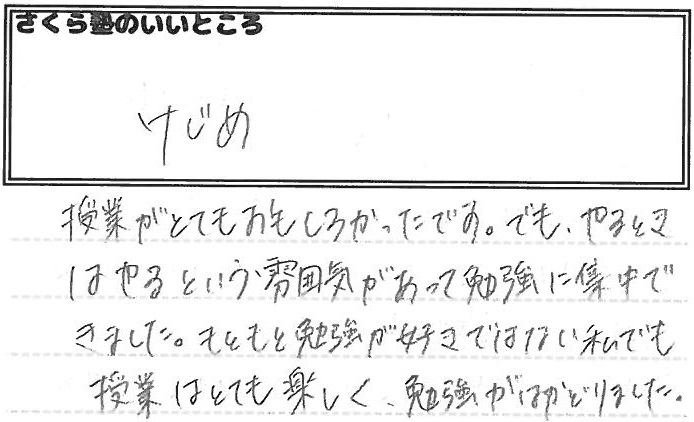 さくら塾のいいところ
けじめ
授業がとてもおもしろかったです。でも、やるとき
はやるという雰囲気があって勉強に集中で
きました。もともと勉強が好きではない私でも
授業はとても楽しく、勉強がはかどりました。